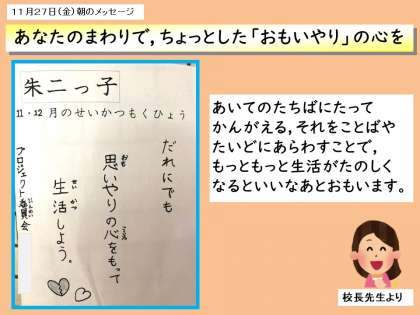 11月27日(金)朝のメッセージ
あなたのまわりで,ちょっとした「おもいやり」の心を
朱二っ子
11・12月のせいかつもくひょう
だれにでも
思いやりの心をもって
生活しよう。
プロジェクト委員会
あいてのたちばにたって
かんがえる,それをことばや
たいどにあらわすことで,
もっともっと生活がたのしく
なるといいなあとおもいます。
校長先生より